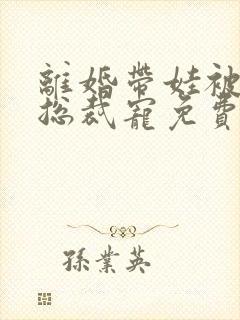 離婚帶娃被
總裁寵免費
孫業英